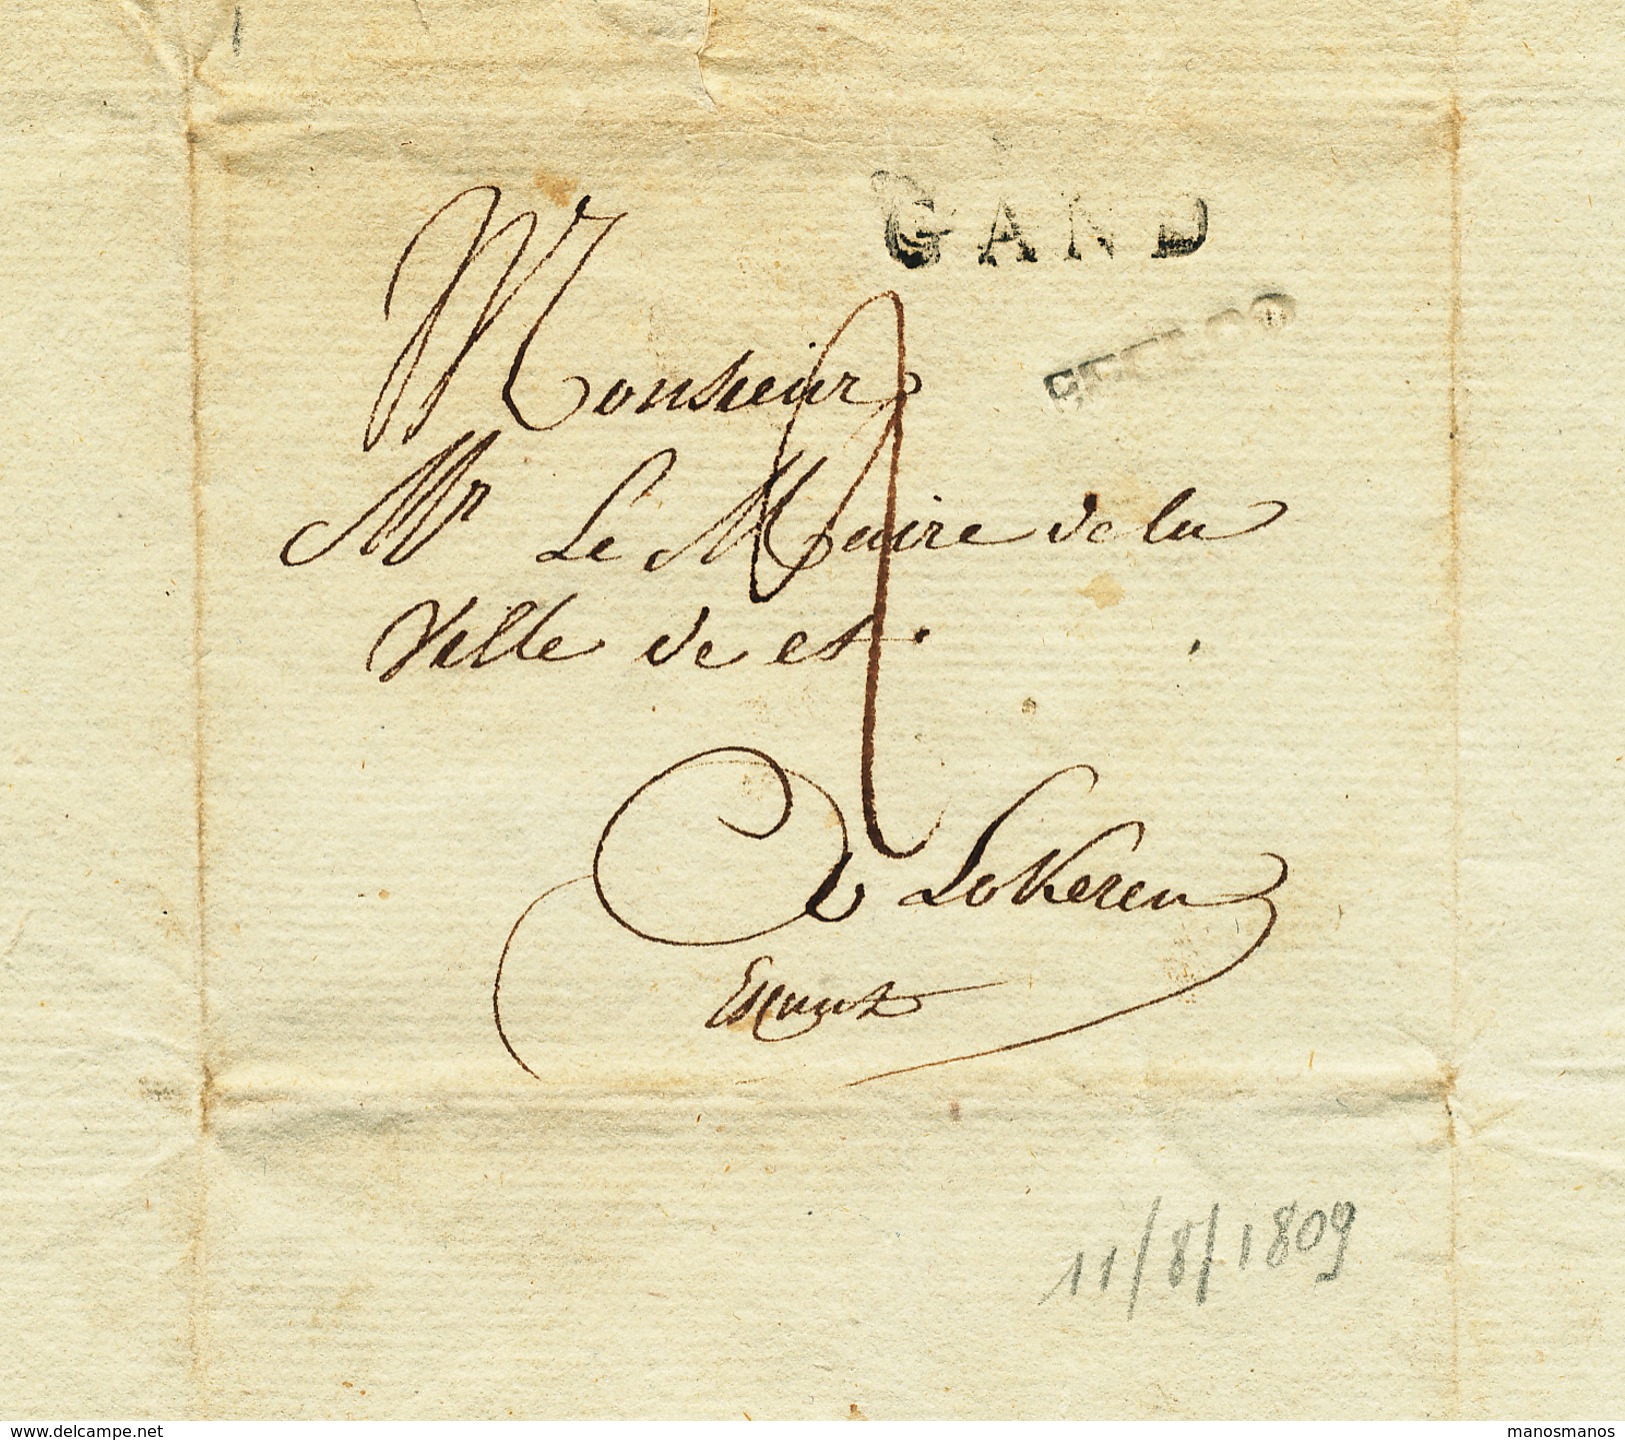 GAND
Monsieur
Mr Le Maire de la
Ville de et
a Lokeren
Escaut
11/8/1809
delcampe.net
manosmanos